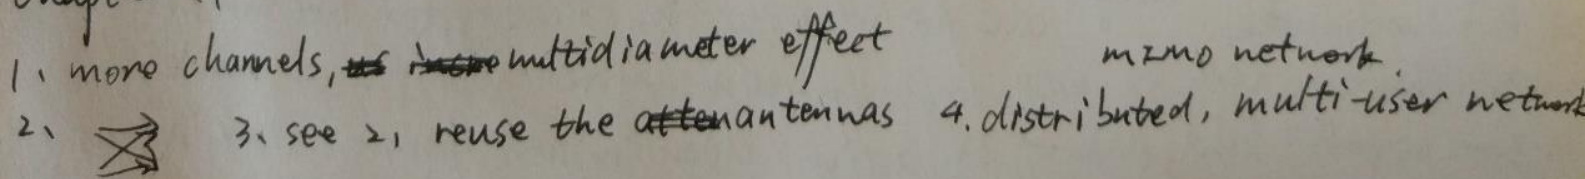 1、more channels, multidiameter effect
mimo network.
2、 3、see 2, reuse the antennas 4. distributed, multi-user network